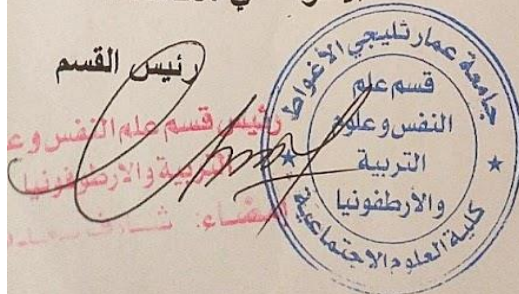 رئيس القسم
رئيس قسم علم النفس و
التربية والارطوفونيا
امضاء:
جامعة عمار ثليجي الأغواط
قسم علم
النفس وعلوم
التربية
والأرطفونيا
كلية العلوم الاجتماعية